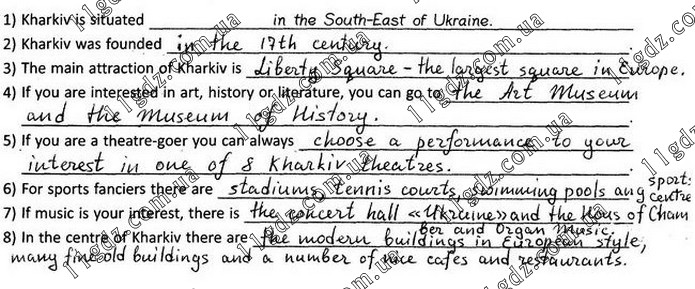 1) Kharkiv is situated in the South-East of Ukraine.
2) Kharkiv was founded in the 17th century.
3) The main attraction of Kharkiv is Liberty Square – the largest square in Europe.
4) If you are interested in art, history or literature, you can go to the Art Museum
and the Museum of History.
5) If you are a theatre-goer you can always choose a performance to your
interest in one of 8 Kharkiv theatres.
6) For sports fanciers there are stadiums, tennis courts, swimming pools and sport:
centre
7) If music is your interest, there is the concert hall «Ukraine» and the Hous of Cham
ber and Organ Music.
8) In the centre of Kharkiv there are the modern buildings in European style,
many fine old buildings and a number of nice cafes and restaurants.
11gdz.com.ua